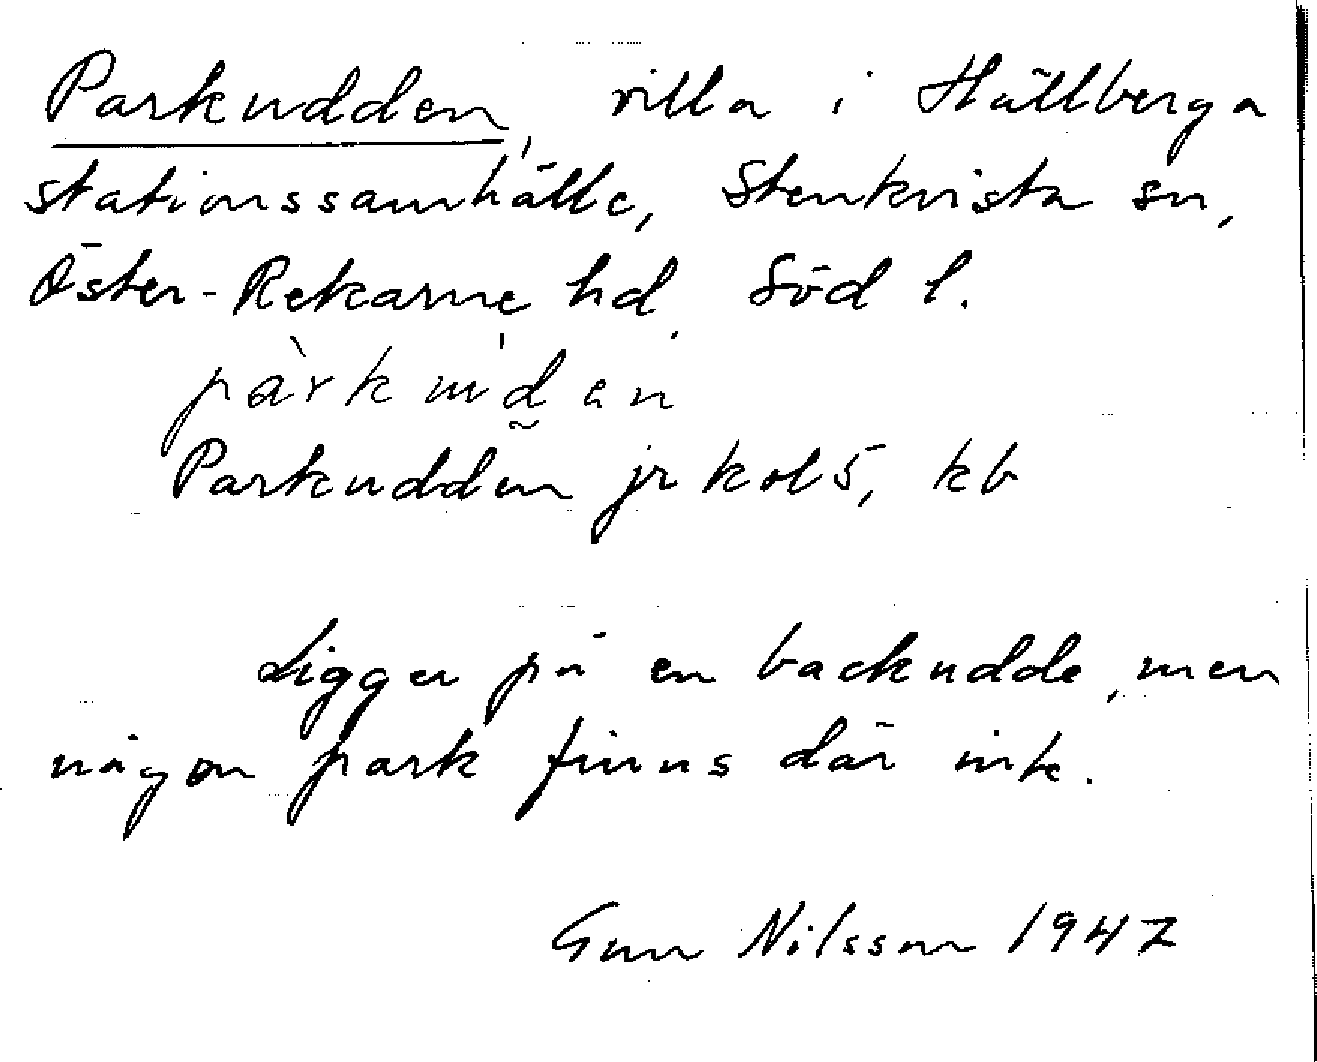 Parkudden, villa i Hållberga
stationssamhälle, Stenkvista sn,
Öster-Rekarne hd. Söd l.
Parkudden jr kol 5, kb
Ligger på en backudde, men
någon park finns där inte.
Gun Nilsson 1947